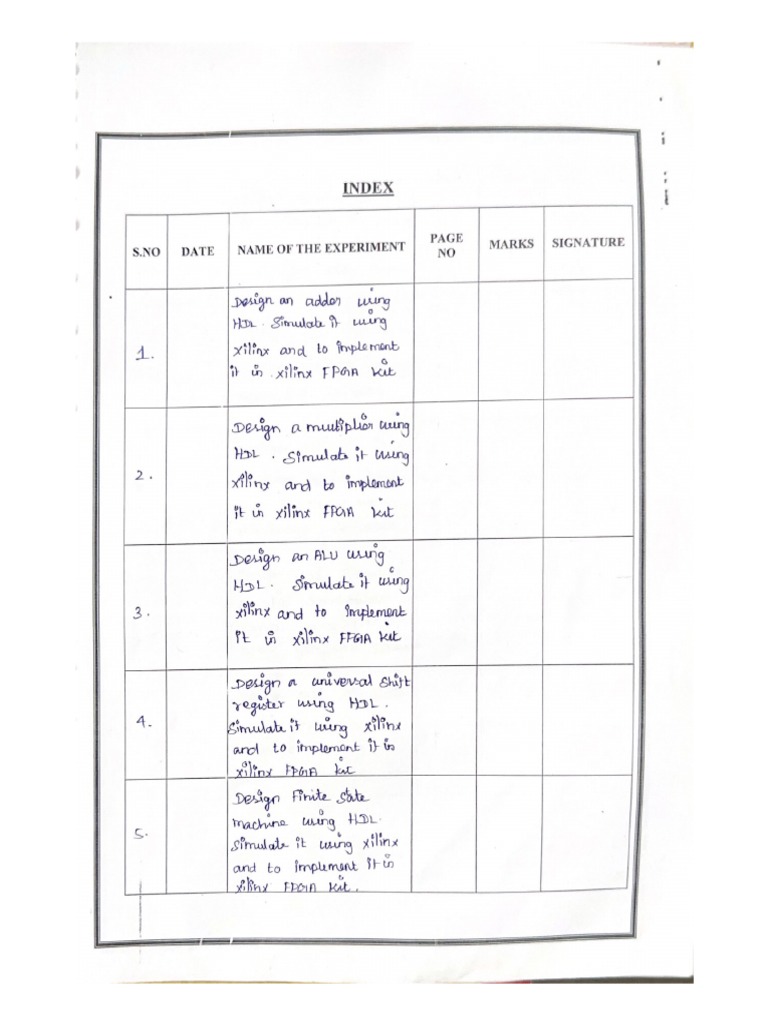 INDEX
S.NO DATE NAME OF THE EXPERIMENT PAGE NO MARKS SIGNATURE
1. Design an adder using
HDL. Simulate it using
xilinx and to implement
it in xilinx FPGA kit
2. Design a multiplier using
HDL. Simulate it using
xilinx and to implement
it in xilinx FPGA kit
3. Design an ALU using
HDL. Simulate it using
xilinx and to implement
it in xilinx FPGA kit
4. Design a universal shift
register using HDL.
Simulate it using xilinx
and to implement it in
xilinx FPGA kit
5. Design Finite State
machine using HDL.
Simulate it using xilinx
and to implement it in
xilinx FPGA kit.